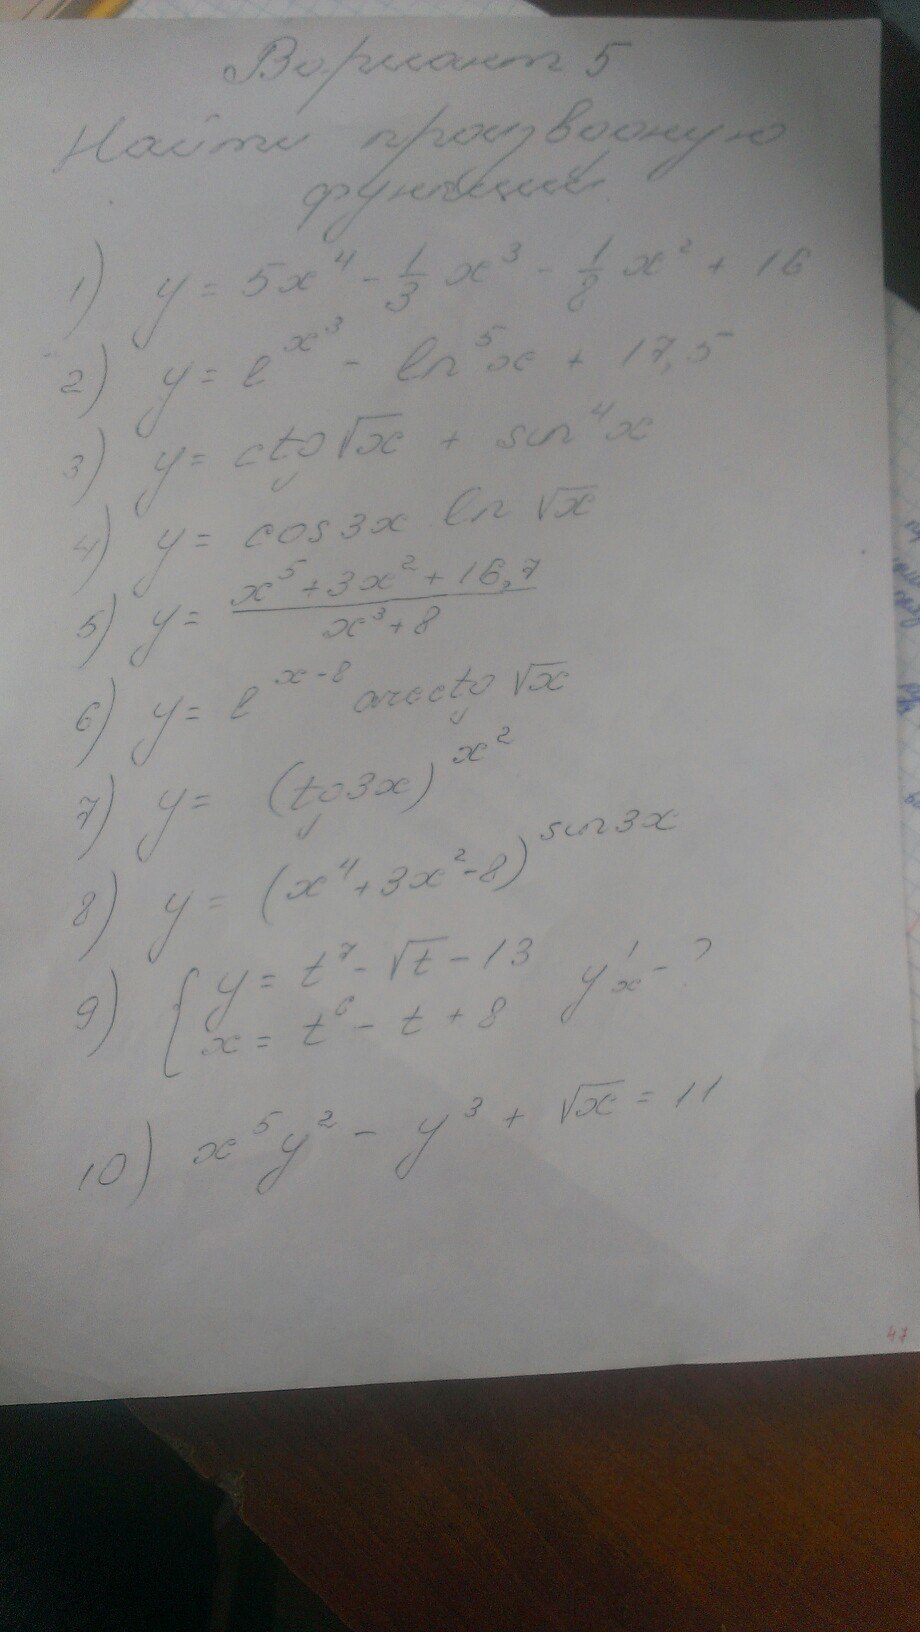 Вариант 5
Найти производную
функции
1) y = 5x⁴ - 1/3 x³ - 1/8 x² + 16
2) y = e^x³ - ln⁵x + 17,5
3) y = ctg √x + sin⁴x
4) y = cos3x ln √x
5) y = (x⁵ + 3x² + 16,7)/(x³ + 8)
6) y = e^(x-8) arcctg √x
7) y = (tg3x)^x²
8) y = (x⁴ + 3x² - 8)^sin3x
9) { y = t⁷ - √t - 13 y'ₓ - ?
x = t⁶ - t + 8
10) x⁵y² - y³ + √x = 11
47